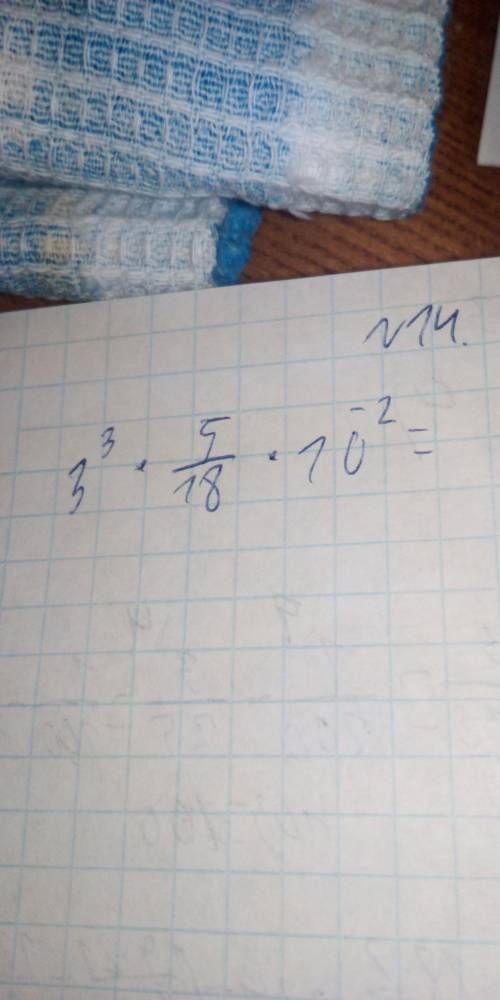 №14.
3³ · 5/18 · 10⁻² =